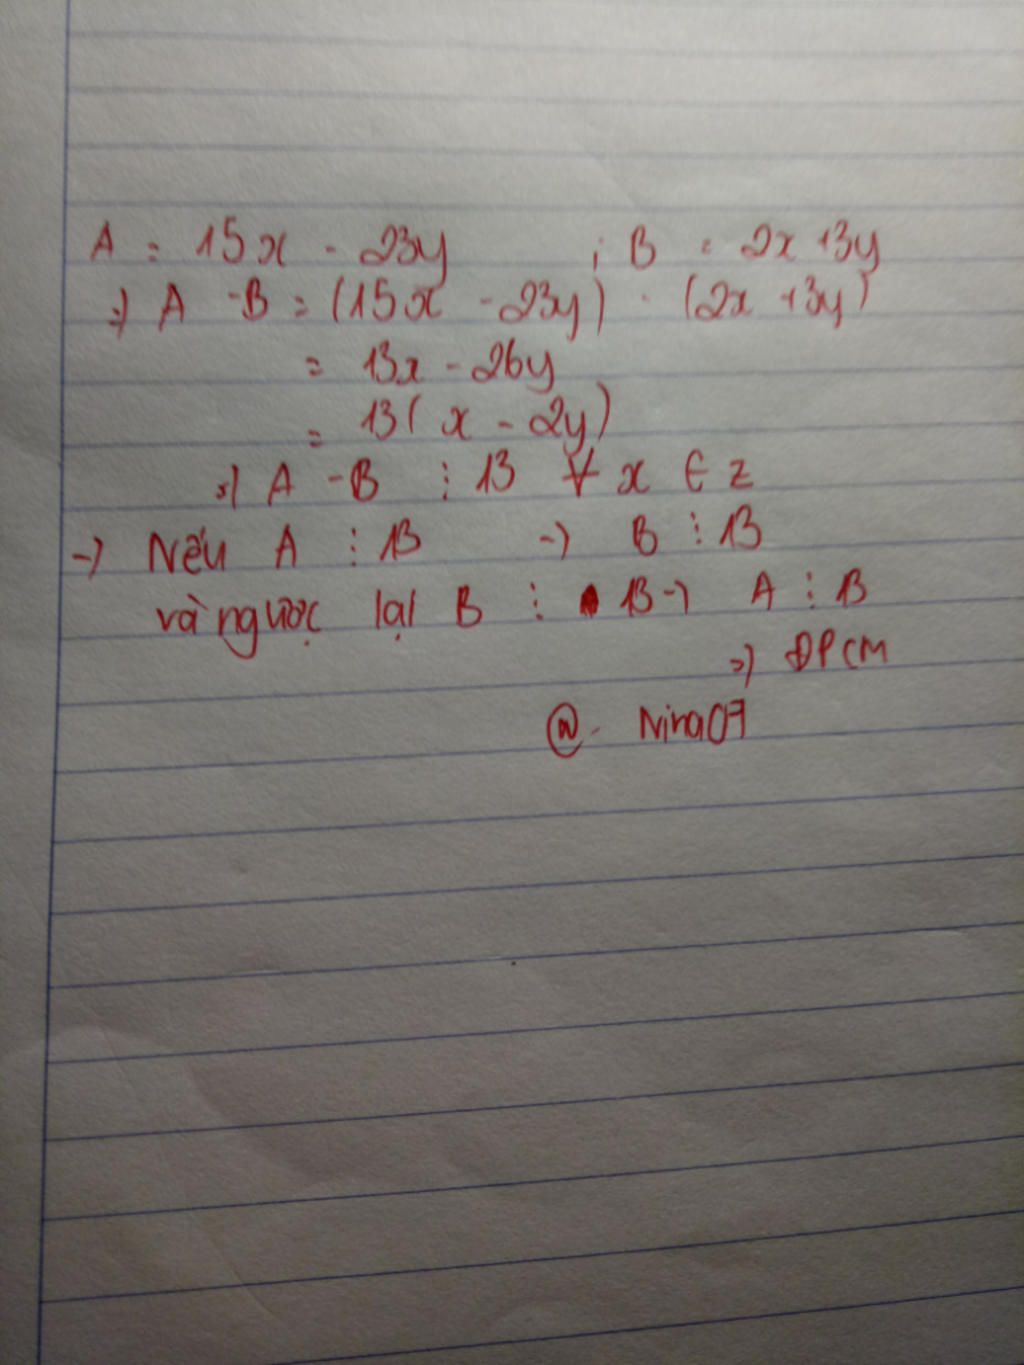 A = 15x - 23y ; B = 2x + 3y
=) A - B = (15x - 23y) - (2x + 3y)
= 13x - 26y
= 13( x - 2y)
=) A - B ⋮ 13 ∀ x ∈ Z
-) Nếu A ⋮ 13 -) B ⋮ 13
và ngược lại B ⋮ 13 -) A ⋮ 13
=) ĐPCM
@. Nina07